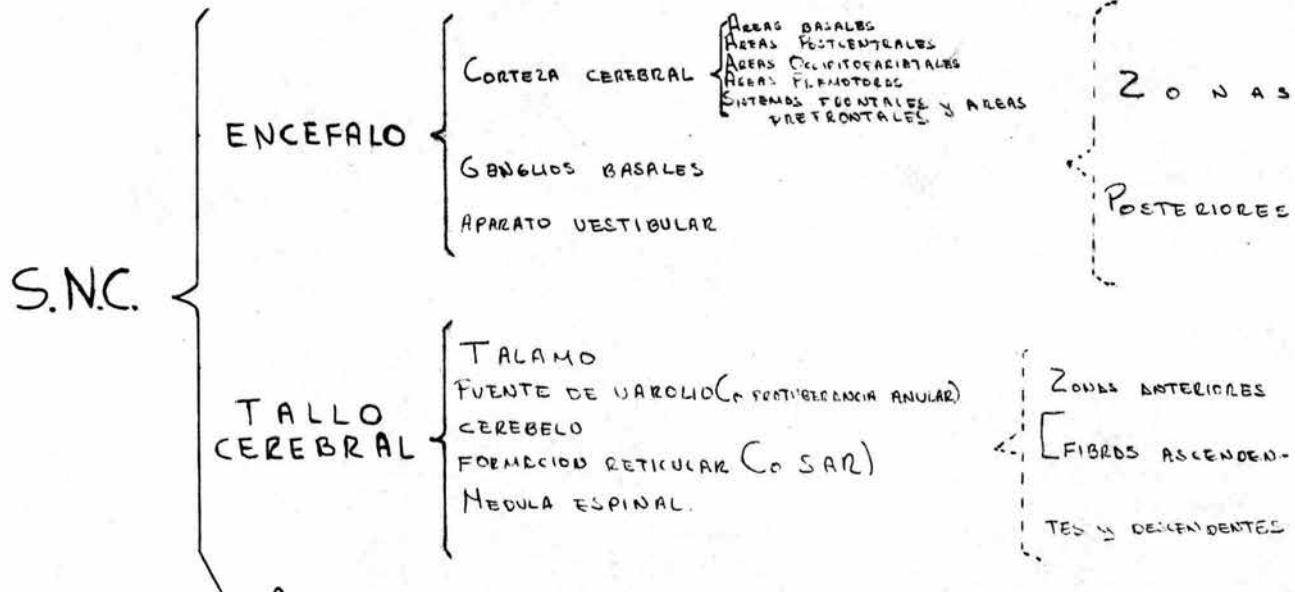 S.N.C.
ENCEFALO
CORTEZA CEREBRAL
AREAS BASALES
AREAS POSTCENTRALES
AREAS OCCIPITOPARIATALES
AREAS PREMOTORAS
SISTEMAS FRONTALES y AREAS
PREFRONTALES
GANGLIOS BASALES
APARATO VESTIBULAR
ZONAS
POSTERIORES
TALLO
CEREBRAL
TALAMO
PUENTE DE VAROLIO (o PROTUBERANCIA ANULAR)
CEREBELO
FORMACION RETICULAR (o SAR)
MEDULA ESPINAL.
ZONAS ANTERIORES
[FIBRAS ASCENDEN-
TES y DESCENDENTES